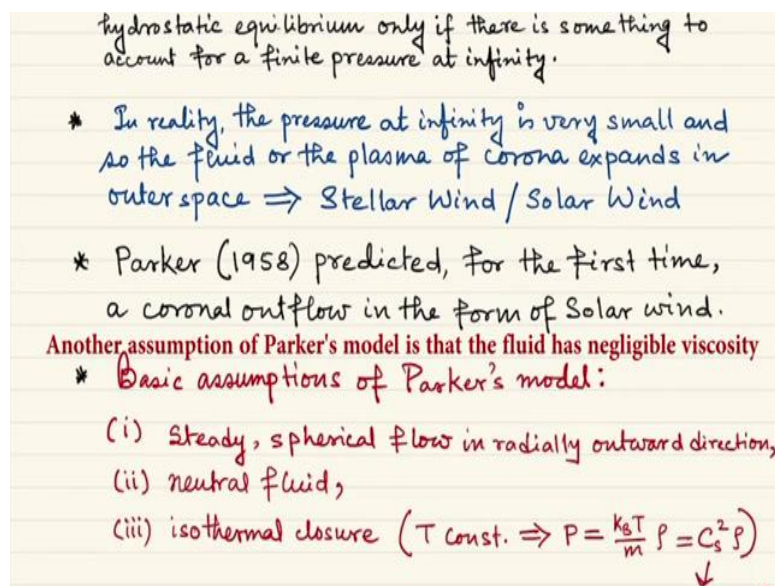 hydrostatic equilibrium only if there is something to
account for a finite pressure at infinity.
* In reality, the pressure at infinity is very small and
so the fluid or the plasma of corona expands in
outer space ⇒ Stellar Wind / Solar Wind
* Parker (1958) predicted, for the first time,
a coronal outflow in the form of Solar wind.
Another assumption of Parker's model is that the fluid has negligible viscosity
* Basic assumptions of Parker's model:
(i) Steady, spherical flow in radially outward direction,
(ii) neutral fluid,
(iii) isothermal closure (T const. ⇒ P = k_B T/m ρ = C_s^2 ρ)
↓